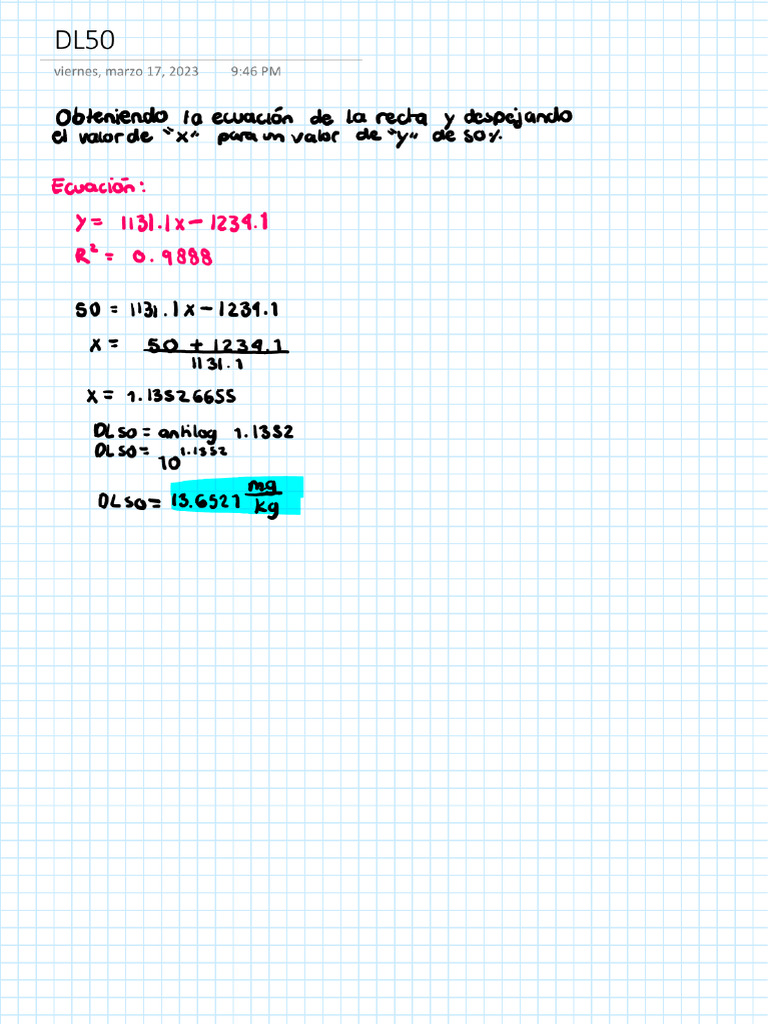 DL50
viernes, marzo 17, 2023 9:46 PM
Obteniendo la ecuación de la recta y despejando
el valor de "x" para un valor de "y" de 50%
Ecuación:
y = 1131.1x - 1234.1
R² = 0.9888
50 = 1131.1x - 1234.1
x = 50 + 1234.1
1131.1
x = 1.13526655
DL50 = antilog 1.1352
DL50 = 10^1.1352
DL50 = 13.6521 mg/kg